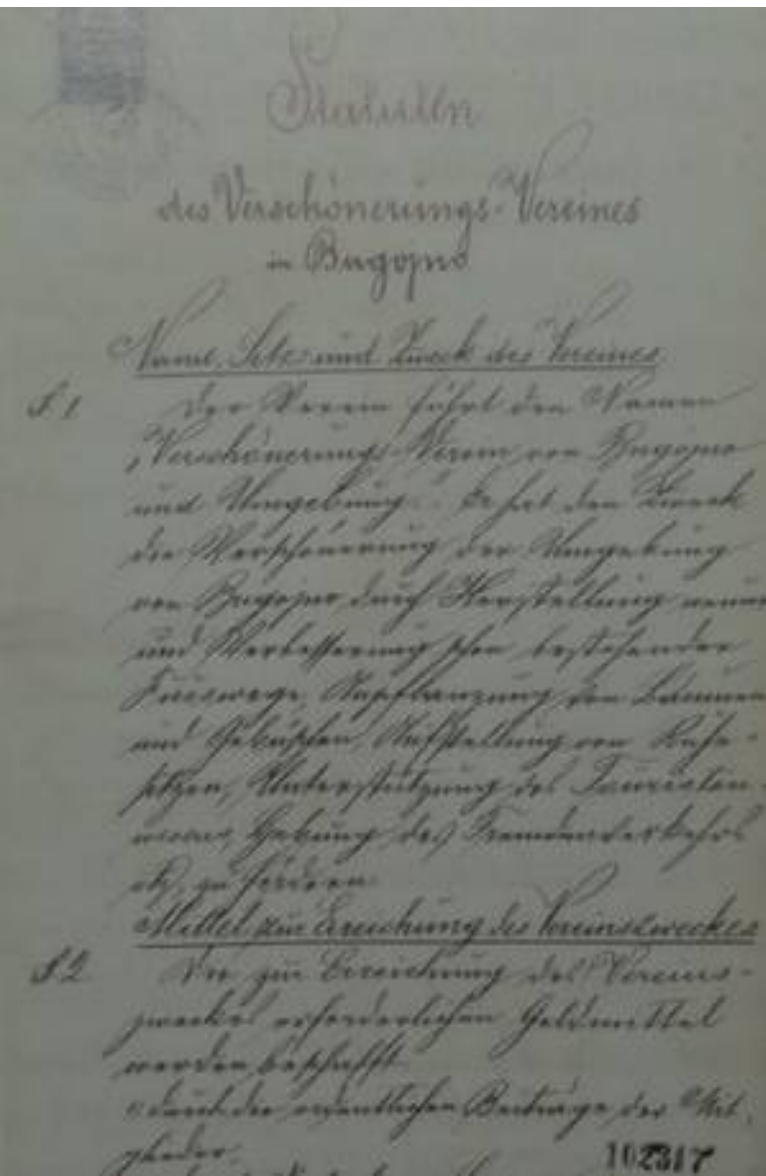 Statuten
des Verschönerungs-Vereines
in Bugojno
Name, Sitz und Zweck des Vereines
§ 1 Der Verein führt den Namen
„Verschönerungs-Verein von Bugojno
und Umgebung." Er hat den Zweck
die Verschönerung der Umgebung
von Bugojno durch Herstellung neuer
und Verbesserung schon bestehender
Anpflanzung von Bäumen
und Gebüschen, Aufstellung von Ruhe-
sitzen, Unterstützung des Touristen-
wesens, Hebung des Fremdenverkehrs
etz. zu fördern.
Mittel zur Erreichung des Vereinszweckes
§ 2 Die zur Erreichung des Vereins-
zweckes erforderlichen Geldmittel
werden beschafft
durch die ordentlichen Beiträge der Mit-
glieder.
102317